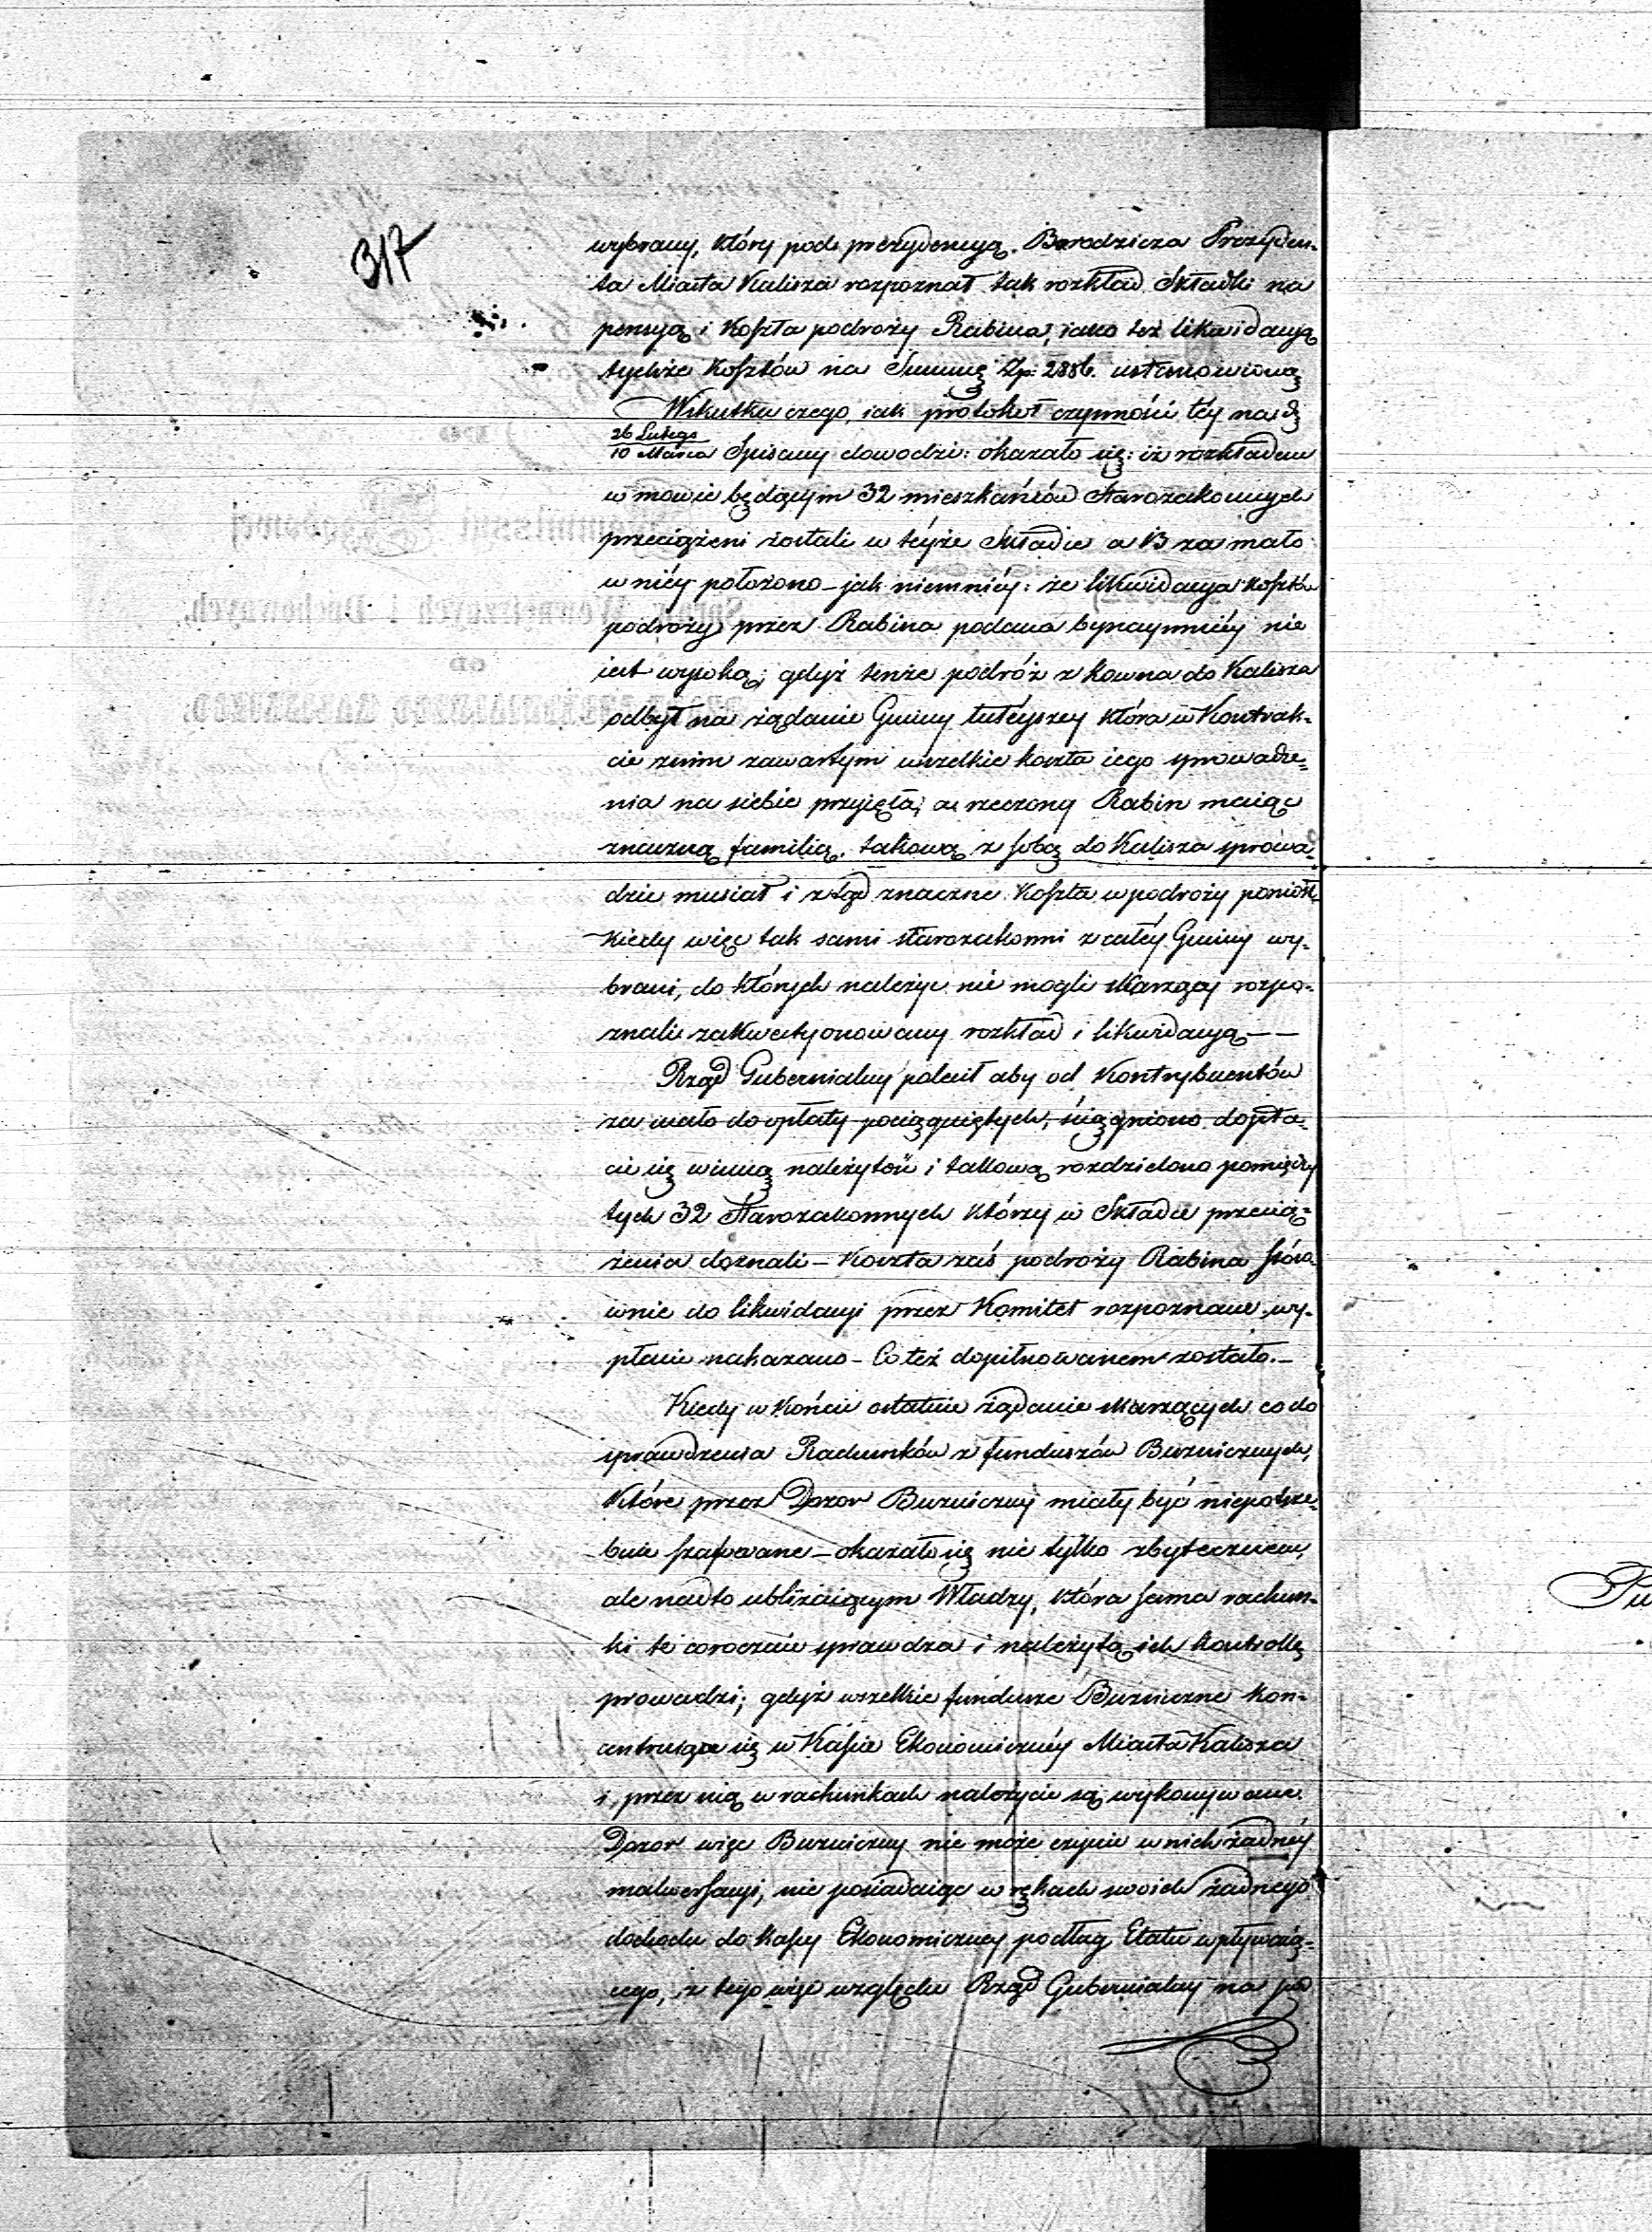 317
wybrany, który pod prezydencyą Borodzicza Prezyden-
ta Miasta Kalisza rozpoznał tak rozkład Składki na
pensyą i koszta podroży Rabina, iako też likwidacyą
tychże kosztów na Summę Zp: 2886. ustanowioną
Wskutku czego, iak protokół czynności téy na d
26 Lutego
10 Marca Spisany dowodzi: okazało się: iż rozkładem
w mowie będącym 32 mieszkańców Starozakonnych
przeciążeni zostali w téyże Składce a 13 za mało
w niéy położono – jak niemniéy: że likwidacya kosztów
podroży przez Rabina podana bynaymniéy nie
iest wysoką; gdyż tenże podróż z Kowna do Kalisza
odbył na żądanie Gminy tutéyszey która w Kontrak-
cie z nim zawartym wszelkie koszta iego sprowadze-
nia na siebie przyięła; a rzeczony Rabin maiąc
znaczną familią, takową z sobą do Kalisza sprowa-
dzić musiał i ztąd znaczne koszta w podroży poniósł
Kiedy więc tak sami starozakonni z całéy Gminy wy-
brani, do których należyć nie mogli skarżący rozpo-
znali zakwestyonowany rozkład i likwidacyą – –
Rząd Gubernialny polecił aby od Kontrybuentów
za mało do opłaty pociągniętych, ściągniono dopła-
cić się winną należytość i takową rozdzielono pomiędzy
tych 32 Starozakonnych którzy w Składce przecią-
żenia doznali – Koszta zaś podroży Rabina stóso-
wnie do likwidacyi przez Komitet rozpoznane wy-
płacić nakazano – Co też dopilnowanem zostało. –
Kiedy w końcu ostatnie żądanie skarzących co do
sprawdzenia Rachunków z funduszów Bużniczych,
które przez Dozor Bużniczny miały być niepotrze-
bnie szafowane – okazało się nie tylko zbytecznem,
ale nadto ubliżaiącym Władzy, która sama rachun-
ki te corocznie sprawdza i należytą ich kontrollę
prowadzi; gdyż wszelkie fundusze Bużniczne kon-
centruiące się w Kassie Ekonomicznéy Miasta Kalisza
i, przez nią w rachunkach należycie są wykonywane.
Dozor więc Bużniczny nie może czynić w nich żadnéy
malwersacyi, nie posiadaiąc w rękach swoich żadnego
dochodu do kassy Ekonomiczney podług Etatu wpływaią-
cego, z tego więc względu Rząd Gubernialny na pod